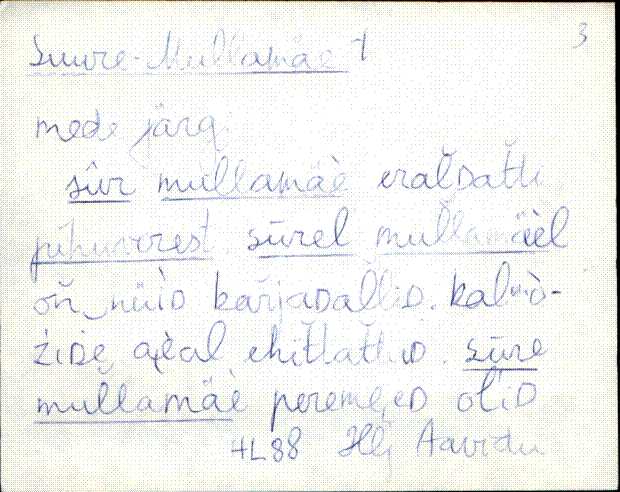 3
Suure-Mullamäe T
mede järg.
sūr mullamäè eralDatti
sūrel mullamäèl
on nüiD karjaDalliD. kalmò-
žiDe aeal ehittattuD. sūre
mullamäè peremeeD oliD
HL 88 Hlj Aavidu